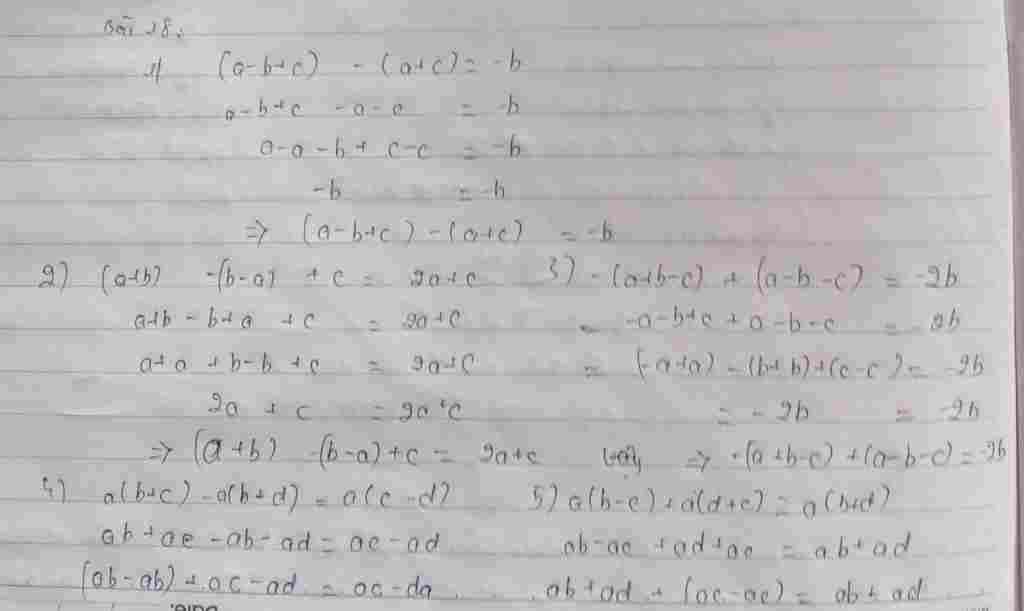 Bài 18:
1) (a-b+c) - (a+c) = -b
a-b+c - a-c = -b
a-a-b+ c-c = -b
-b = -b
=> (a-b+c) - (a+c) = -b
2) (a+b) -(b-a) + c = 2a+c
a+b - b+a + c = 2a+c
a+a + b-b + c = 2a+c
2a + c = 2a+c
=> (a+b) -(b-a)+c = 2a+c
3) -(a+b-c) + (a-b-c) = -2b
= -a-b+c + a-b-c = 2b
= (-a+a) - (b+b)+(c-c) = -2b
= - 2b = -2b
Vậy => -(a+b-c) +(a-b-c) = -2b
4) a(b+c) - a(b+d) = a(c-d)
ab+ac -ab-ad = ac-ad
(ab-ab) + ac-ad = ac-da
5) a(b-c) + a(d+c) = a(b+d)
ab-ac +ad+ac = ab+ad
ab+ad + (ac-ac) = ab+ad